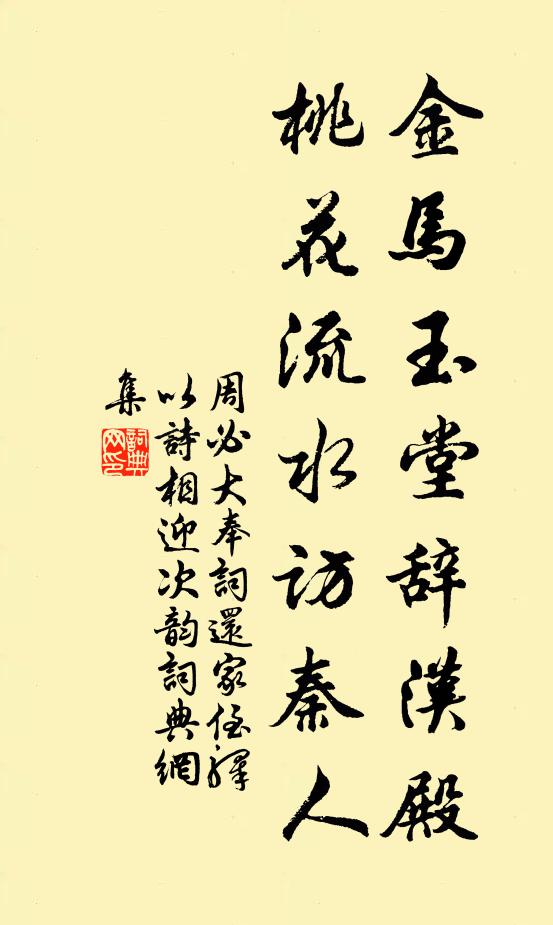 金馬玉堂辞漢殿
桃花流水访秦人
周必大奉詞還家侄驛
以詩相迎次韵詞典網
集
詞典網印